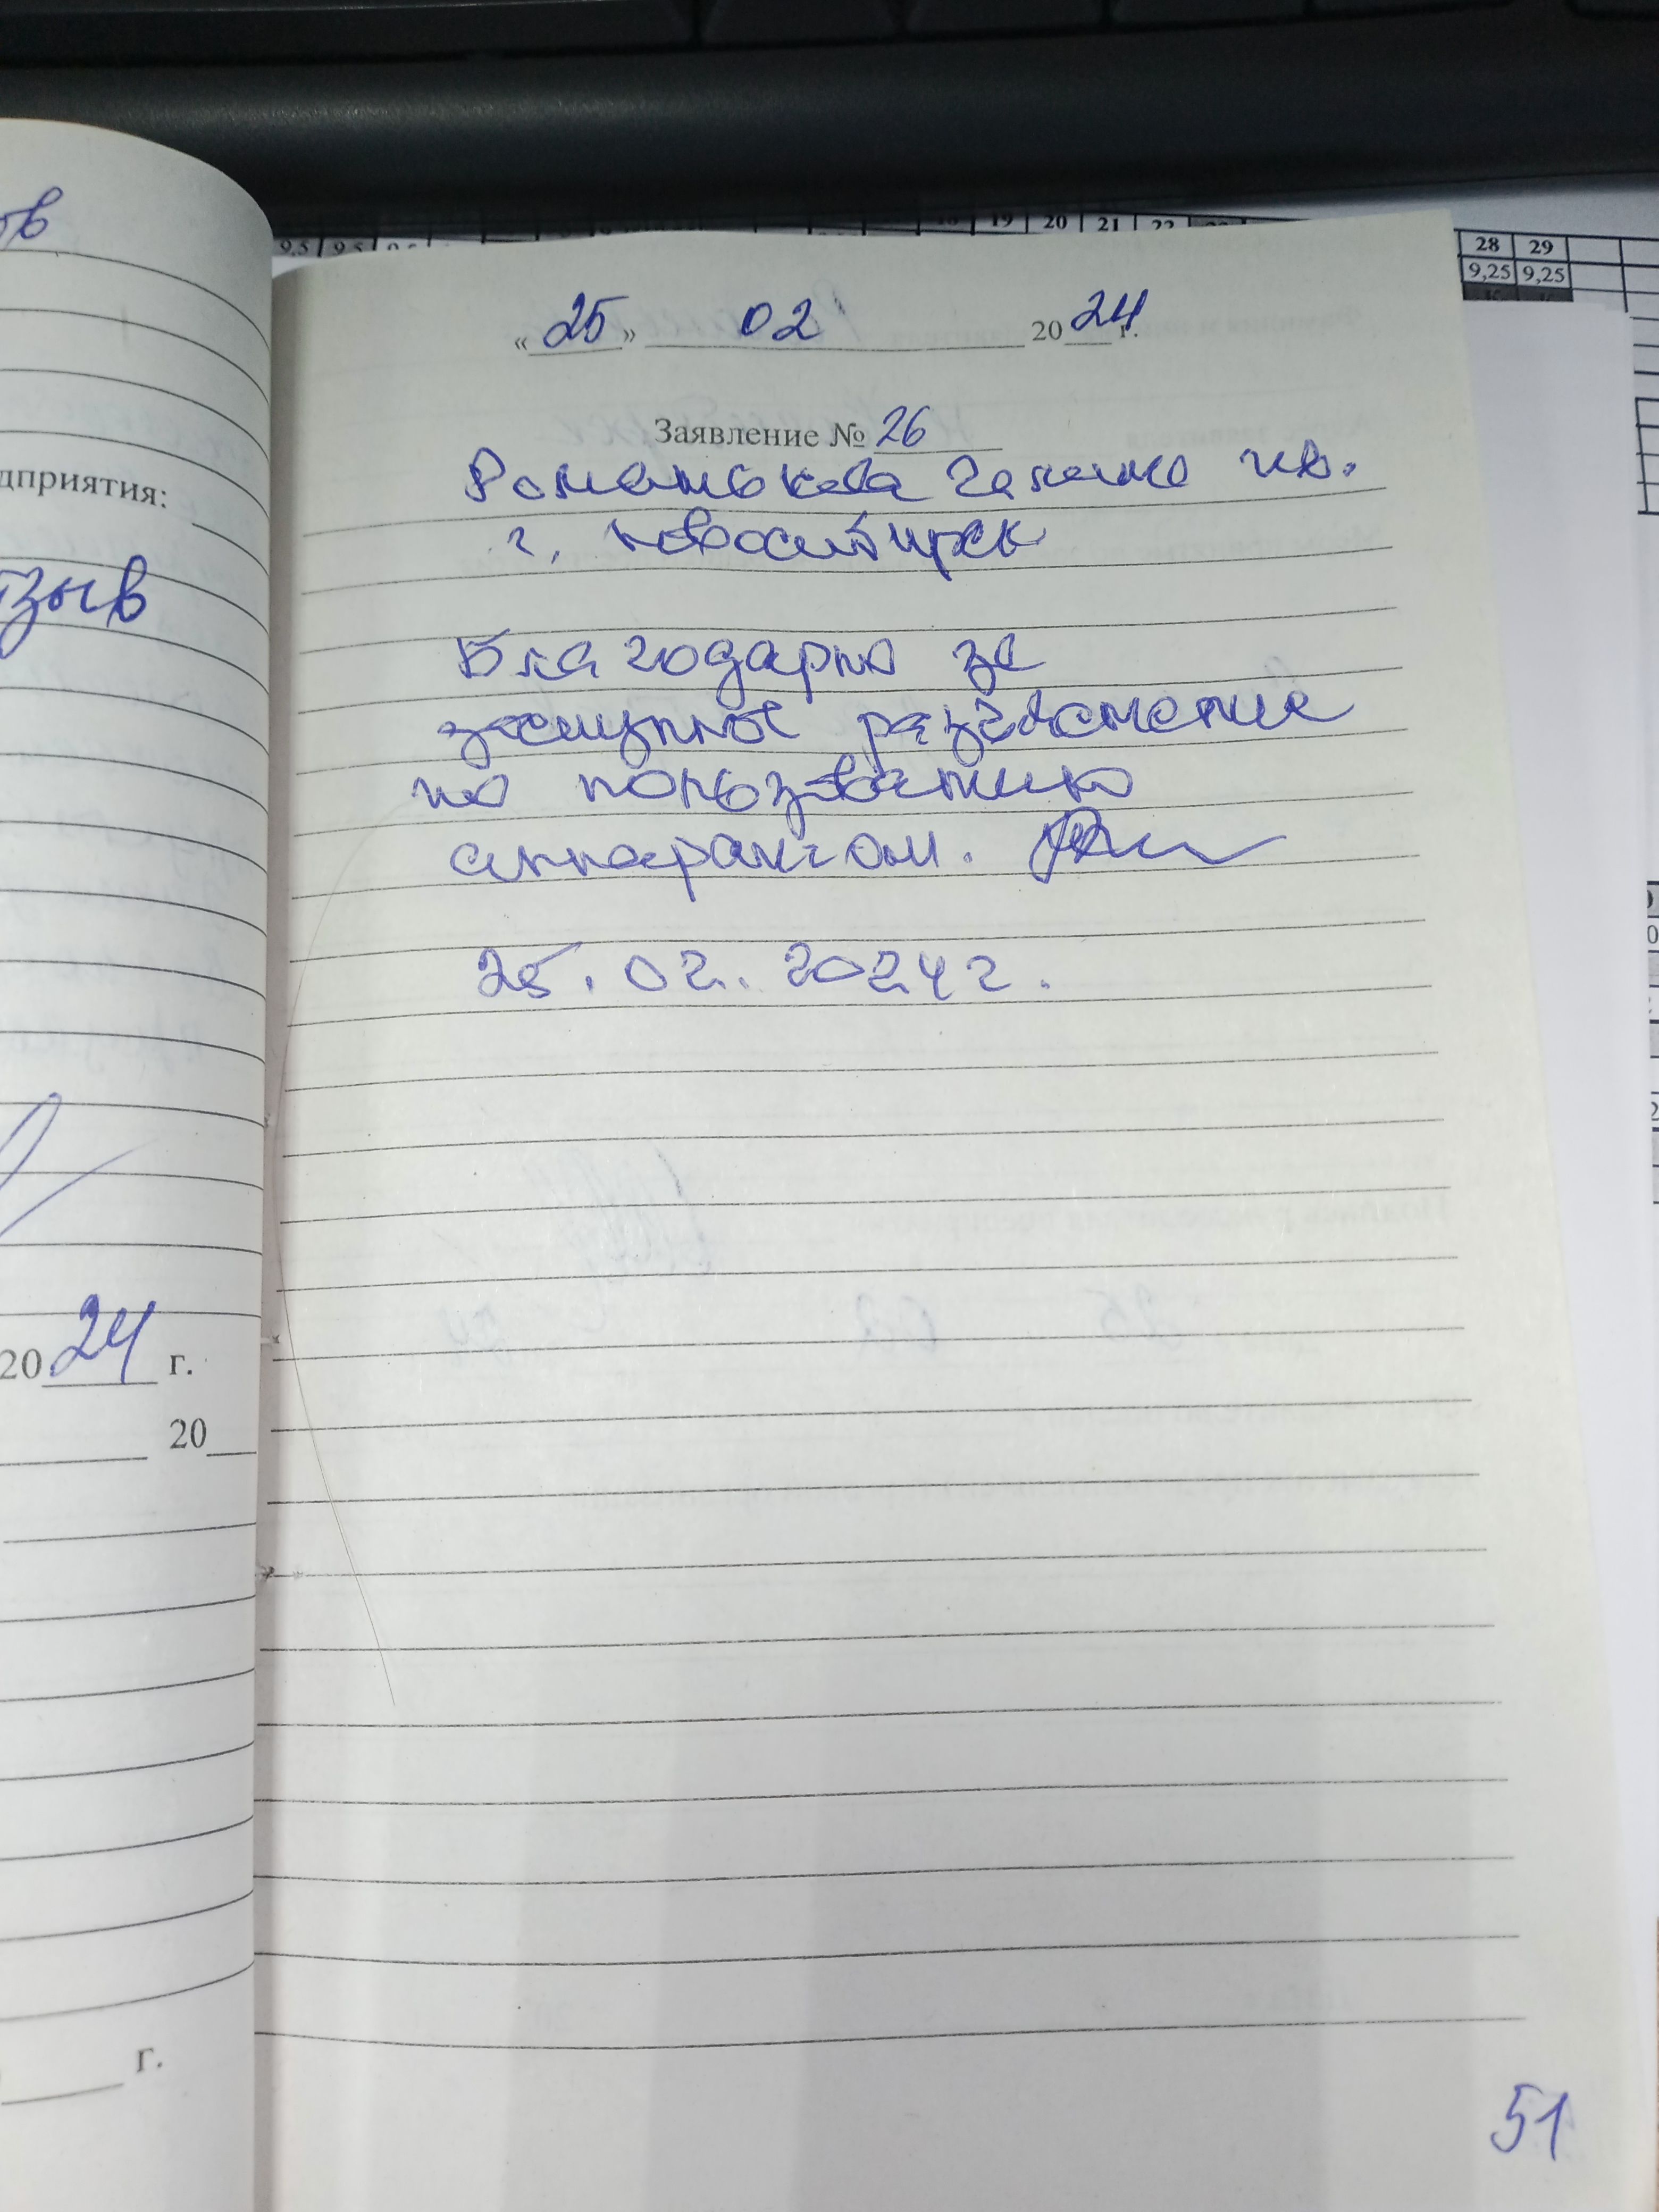 ов
дприятия:
тзыв
2024 г.
20
г.
9,5 9,5
19 20 21 22
28 29
9,25 9,25
«25» 02 2024 г.
Заявление № 26
Романькова Галина
г. Новосибирск
Благодарю за
разъяснение
по пользованию
аппаратом.
25.02.2024 г.
51